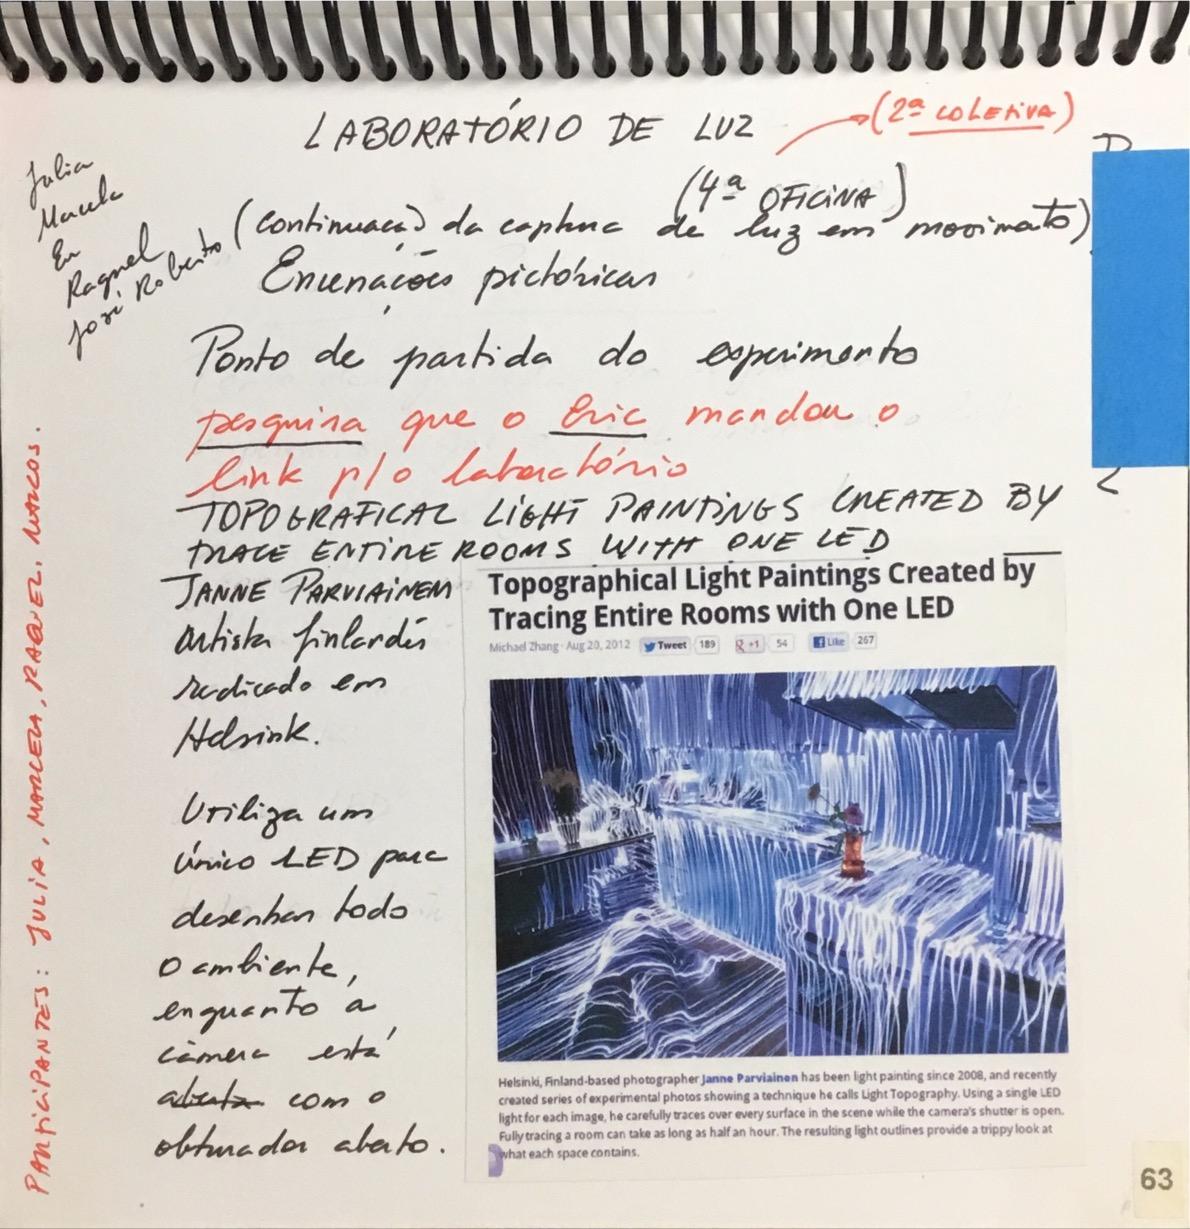 LABORATÓRIO DE LUZ
(2ª COLETIVA)
(4ª OFICINA)
Julia
Marcela
Eu
Raquel
José Roberto
(continuação da captura de luz em movimento)
Encenações pictóricas
Ponto de partida do experimento
pesquisa que o Eric mandou o
link p/o laboratório
TOPOGRAFICAL LIGHT PAINTINGS CREATED BY
TRACE ENTIRE ROOMS WITH ONE LED
JANNE PARVIAINEM
artista finlandês
radicado em
Helsink.
Utiliza um
único LED para
desenhar todo
o ambiente,
enquanto a
câmera está
aberta com o
obturador aberto.
Topographical Light Paintings Created by
Tracing Entire Rooms with One LED
Michael Zhang · Aug 20, 2012 Tweet 189 +1 54 Like 267
Helsinki, Finland-based photographer Janne Parviainen has been light painting since 2008, and recently
created series of experimental photos showing a technique he calls Light Topography. Using a single LED
light for each image, he carefully traces over every surface in the scene while the camera's shutter is open.
Fully tracing a room can take as long as half an hour. The resulting light outlines provide a trippy look at
what each space contains.
PARTICIPANTES: JULIA, MARCELA, RAQUEL. MARCOS.
63